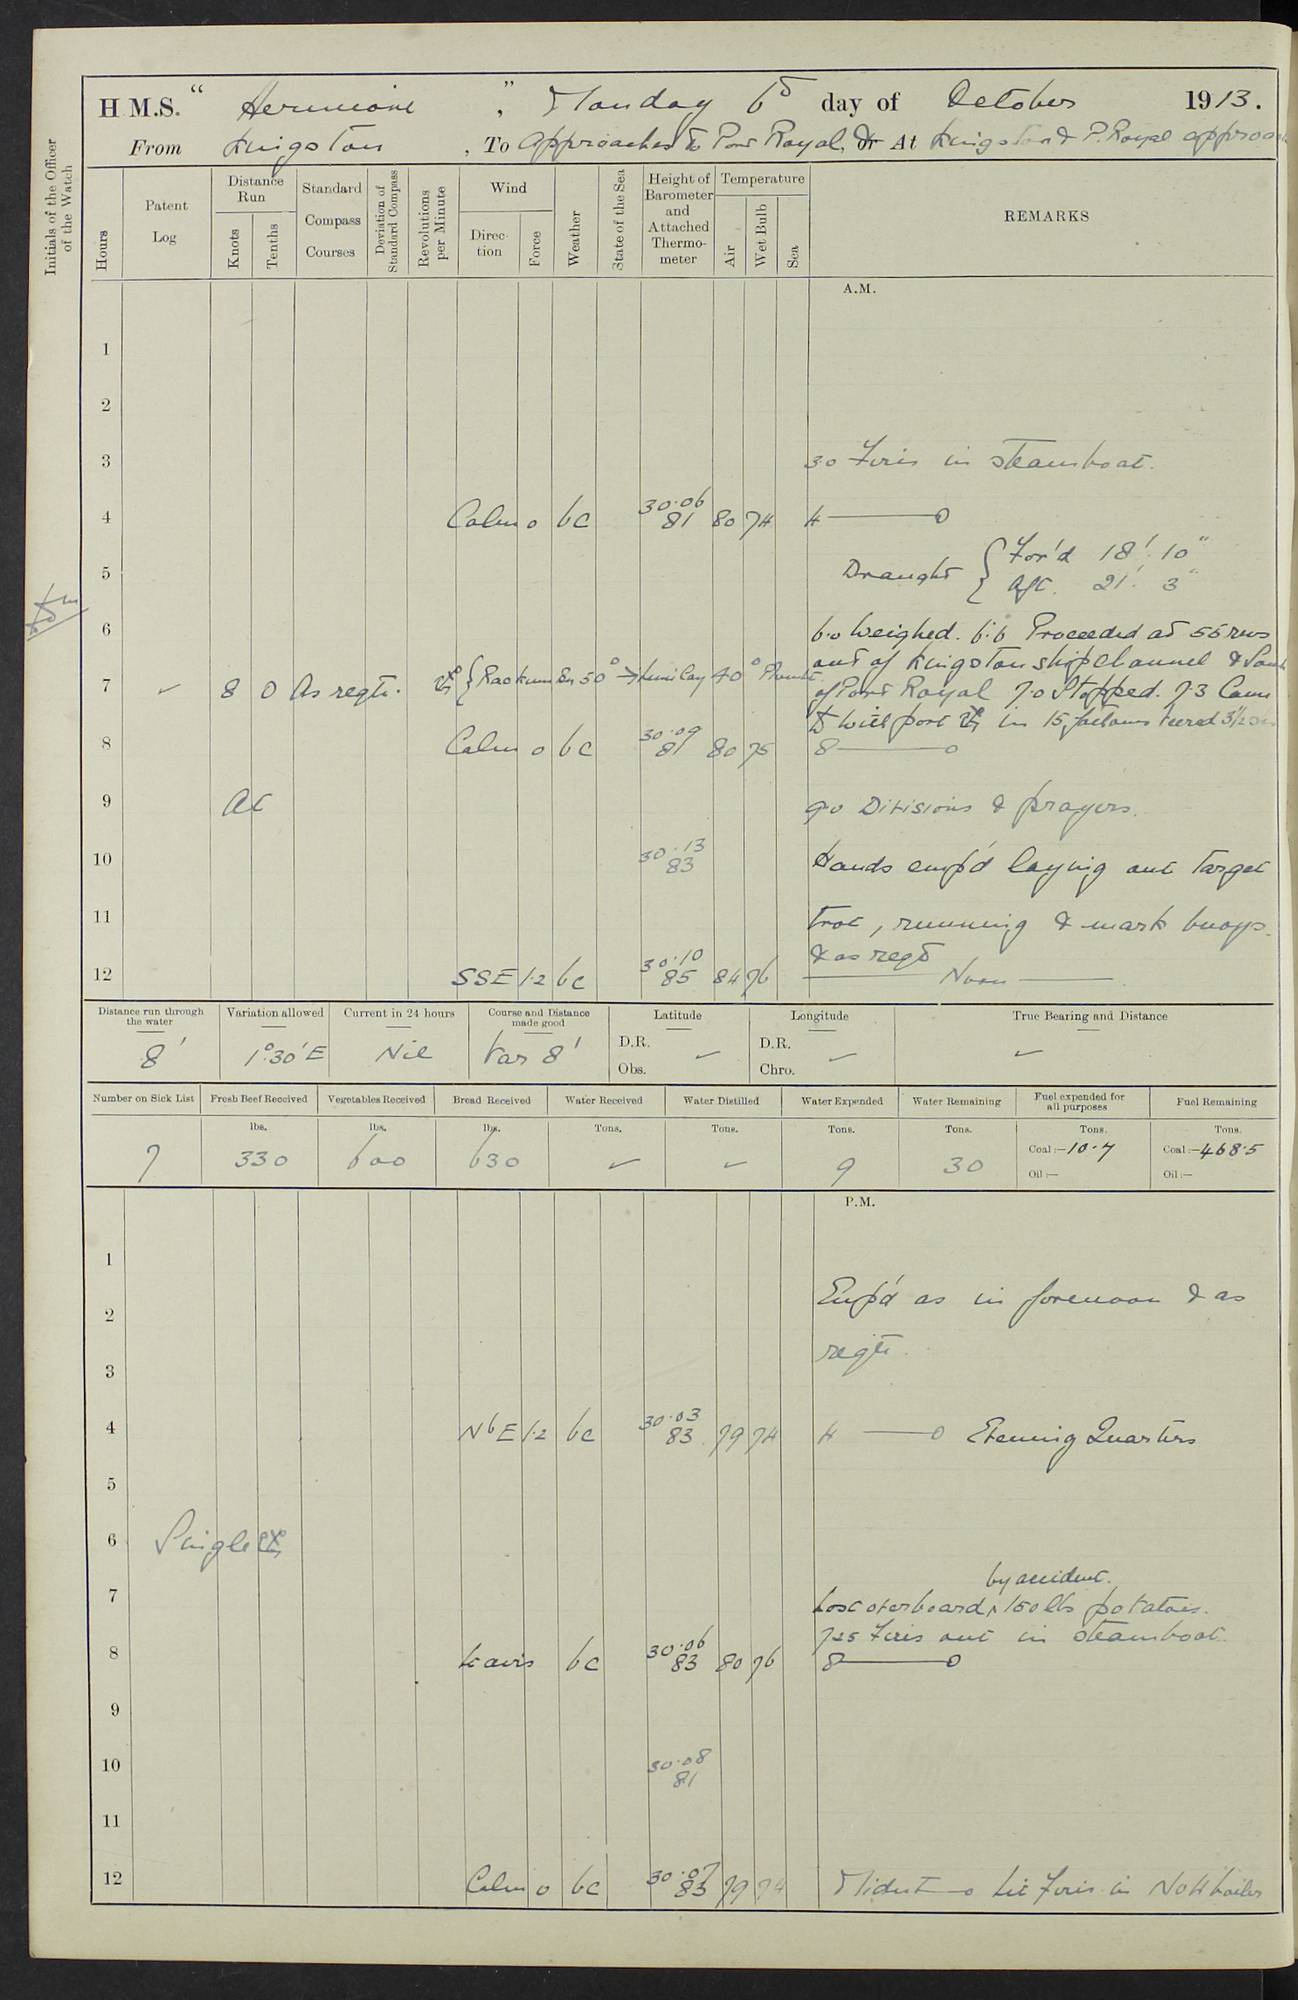 H.M.S. "Hermione", Monday 6th day of October 1913.
From Kingston, To Approaches to Port Royal, or At Kingston & P. Royal approach
Initials of the Officer of the Watch
Hours
Patent Log
Distance Run
Knots
Tenths
Standard Compass Courses
Deviation of Standard Compass
Revolutions per Minute
Wind
Direction
Force
Weather
State of the Sea
Height of Barometer and Attached Thermometer
Temperature
Air
Wet Bulb
Sea
REMARKS
A.M.
1
2
3 3.0 Fires in steamboat.
4 Calm 0 bc 30.06 81 80 74 4 —— 0
5 Draught { For'd 18' 10"
Aft. 21' 3"
6 6.0 Weighed. 6.6 Proceeded at 55 revs
out of Kingston ship channel &
7 ✓ 8 0 As reqte. { Rackum Bn 50° 40°
of Port Royal 7.0 Stopped. 7.3 Came
to with port in 15 fathoms veered 3½
8 Calm 0 bc 30.09 81 80 75 8 —— 0
9 At 9.0 Divisions & prayers.
10 30.13 83 Hands emp'd laying out target
11 trot, running & mark buoys.
& as reqd
12 SSE 1.2 bc 30.10 85 84 76 —— Noon ——
Distance run through the water
Variation allowed
Current in 24 hours
Course and Distance made good
Latitude
Longitude
True Bearing and Distance
8' 1°30'E Nil Var 8' D.R. Obs. ✓ D.R. Chro. ✓ ✓
Number on Sick List
Fresh Beef Received
Vegetables Received
Bread Received
Water Received
Water Distilled
Water Expended
Water Remaining
Fuel expended for all purposes
Fuel Remaining
lbs. lbs. lbs. Tons. Tons. Tons. Tons. Tons. Tons.
7 330 600 630 ✓ ✓ 9 30 Coal:—10.7 Coal:—468.5
Oil:— Oil:—
P.M.
1
2 Emp'd as in forenoon & as
3 reqte.
4 NbE 1.2 bc 30.03 83 79 74 4 —— 0 Evening Quarters
5
6 Single
by accident.
7 Lost overboard ^ 150 lbs potatoes.
7.25 Fires out in steamboat.
8 Lt airs bc 30.06 83 80 76 8 —— 0
9
10 30.08 81
11
12 Calm 0 bc 30.07 83 79 74 Midnt — 0 Lit fires in No 4 boiler